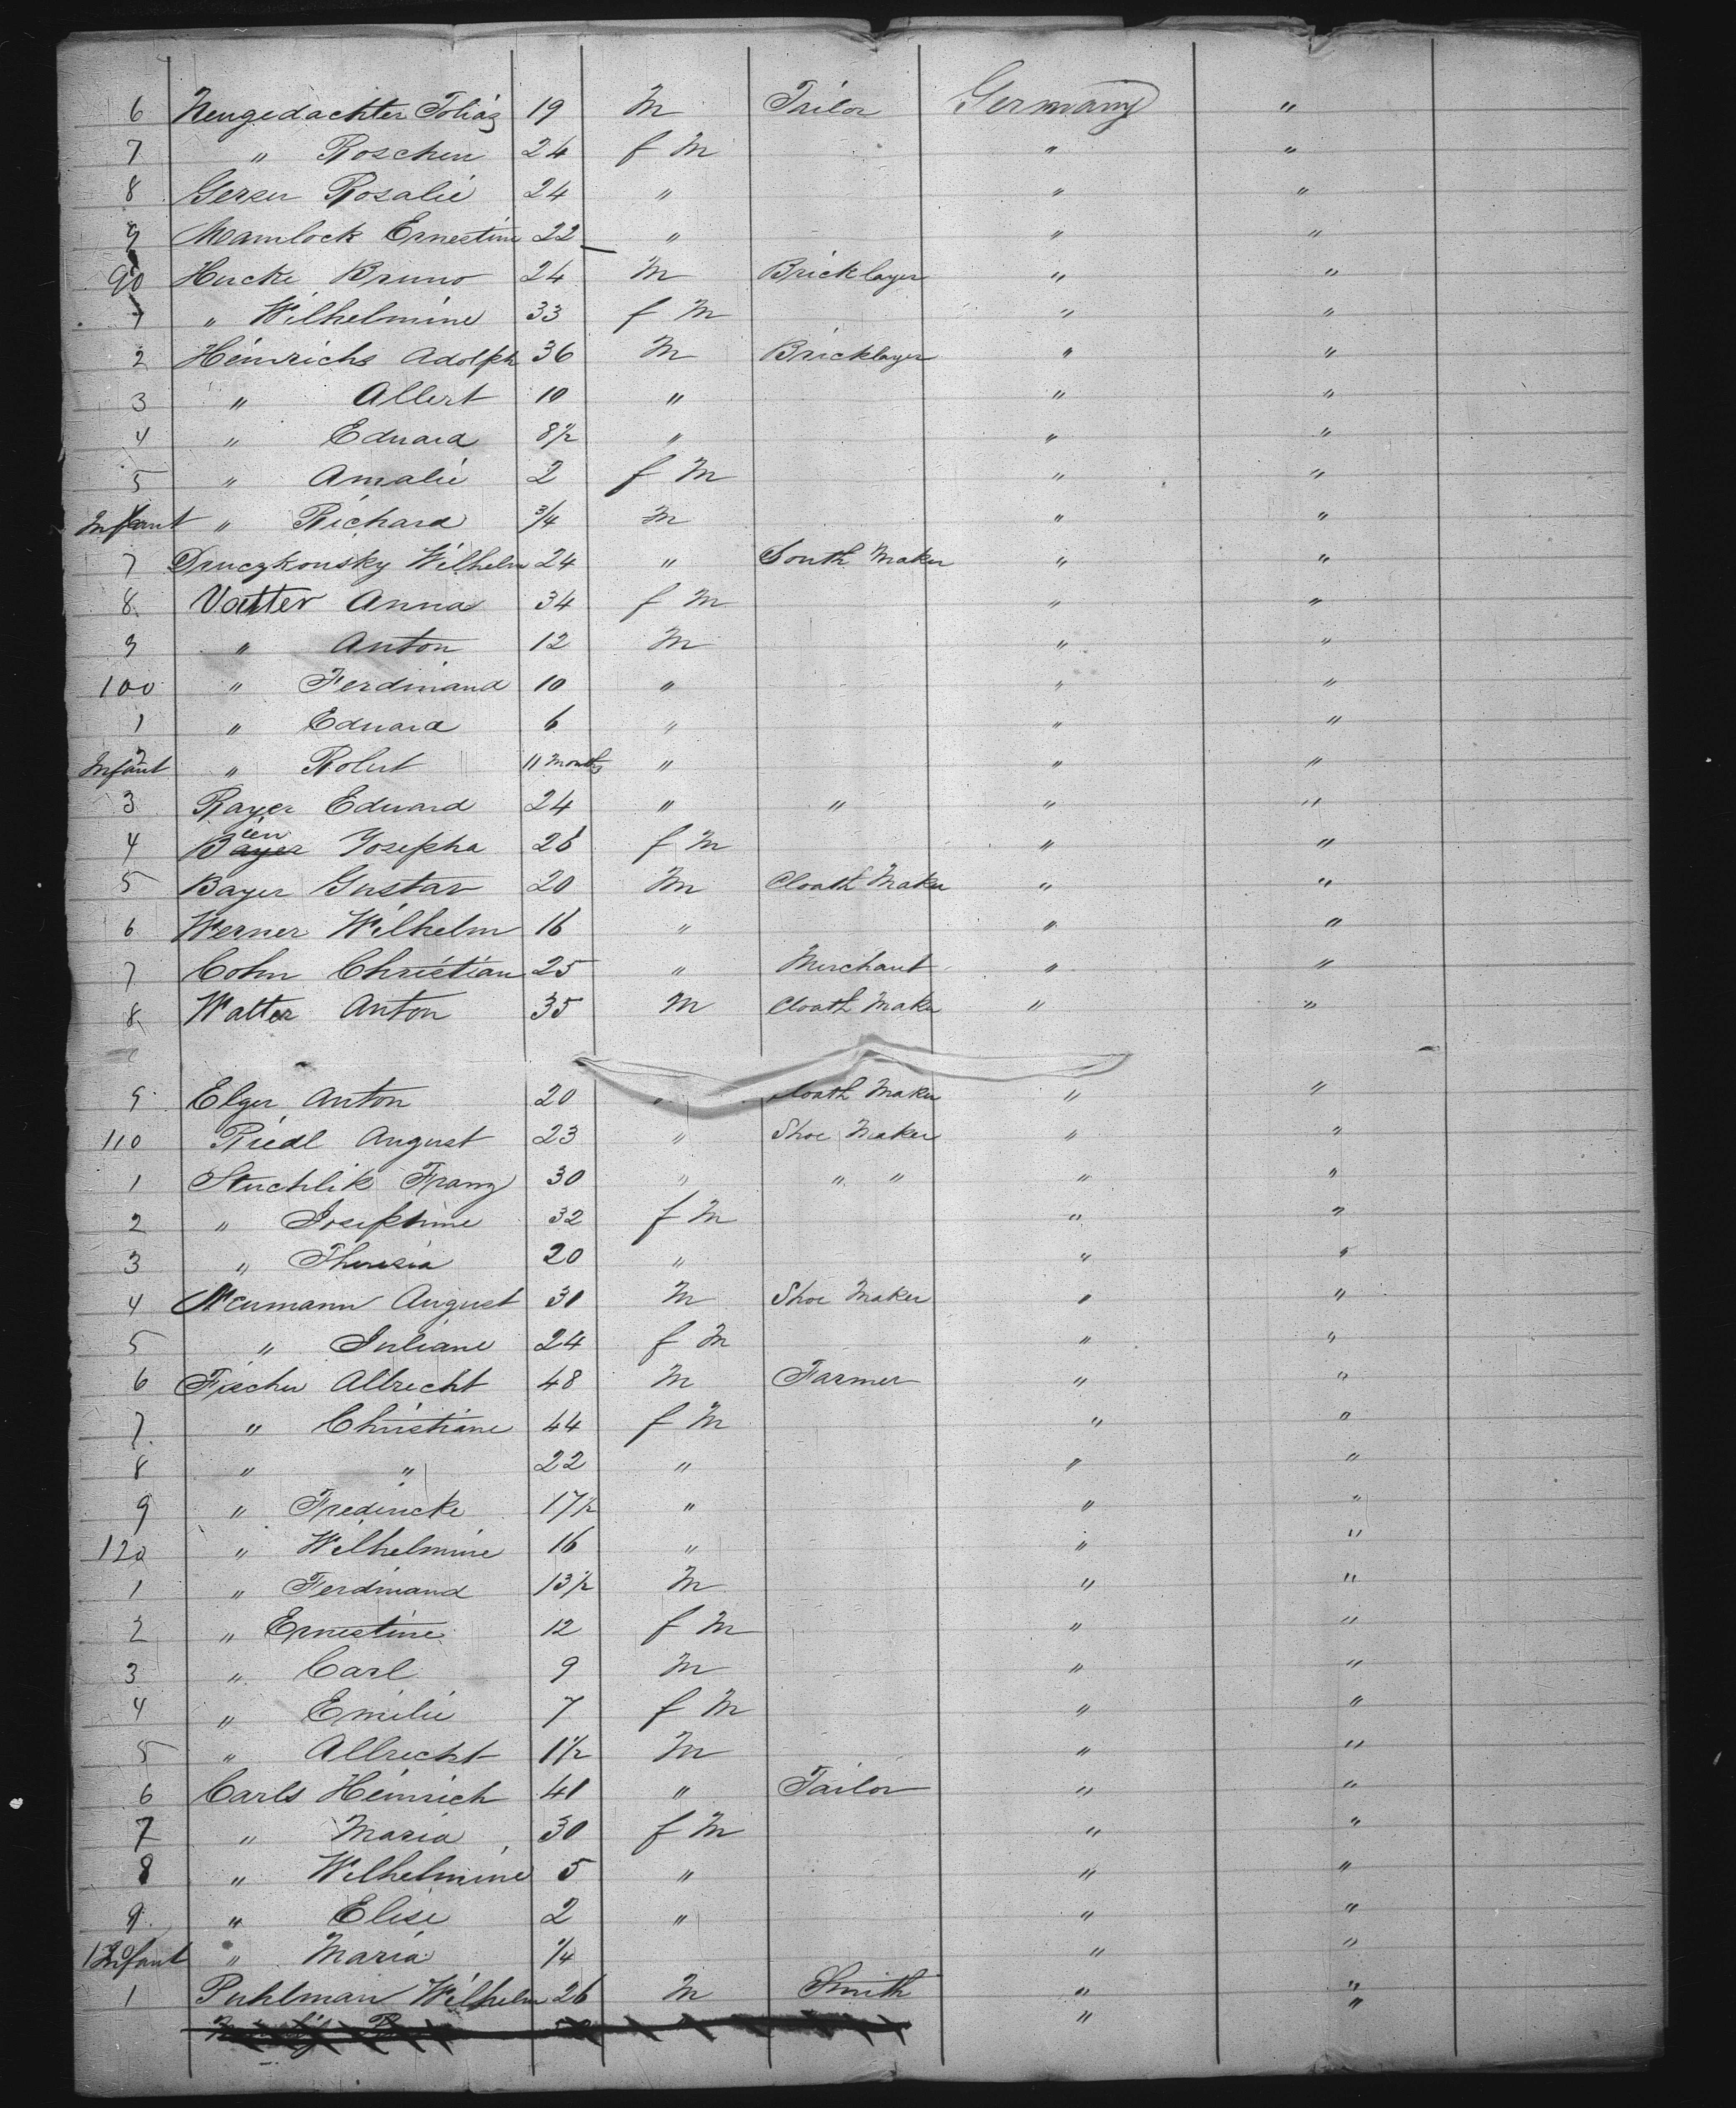 6 Neugedachter Tobias 19 M Tailor Germany "
7 " Roschen 24 f M " "
8 Gerson Rosalie 24 " " "
9 Mamlock Ernestine 22 " " "
90 Hucke Bruno 24 M Bricklayer " "
1 " Wilhelmine 33 f M " "
2 Heinrichs Adolph 36 M Bricklayer " "
3 " Albert 10 " " "
4 " Eduard 8½ " " "
5 " Amalie 2 f M " "
Infant " Richard ¾ M " "
7 Druczkonsky Wilhelm 24 " South Maker " "
8 Vatter Anna 34 f M " "
9 " Anton 12 M " "
100 " Ferdinand 10 " " "
1 " Eduard 6 " " "
2 Infant " Robert 11 Months " " "
3 Rayer Eduard 24 " " " "
4 Bayer Josepha 26 f M " "
5 Bayer Gustav 20 M Cloath Maker " "
6 Werner Wilhelm 16 " " "
7 Cohn Christian 25 " Merchant " "
8 Walter Anton 35 M Cloath Maker " "
9 Elger Anton 20 " Cloath Maker " "
110 Riedl August 23 " Shoe Maker " "
1 Stuchlik Franz 30 " " " " "
2 " Josephine 32 f M " "
3 " Theresia 20 " " "
4 Neumann August 31 M Shoe Maker " "
5 " Juliane 24 f M " "
6 Fischer Albrecht 48 M Farmer " "
7 " Christiane 44 f M " "
8 " " 22 " " "
9 " Fredericke 17½ " " "
120 " Wilhelmine 16 " " "
1 " Ferdinand 13½ M " "
2 " Ernestine 12 f M " "
3 " Carl 9 M " "
4 " Emilie 7 f M " "
5 " Albrecht 1½ M " "
6 Carls Heinrich 41 " Tailor " "
7 " Maria 30 f M " "
8 " Wilhelmine 5 " " "
9 " Elise 2 " " "
130 Infant " Maria ¼ " "
1 Puhlman Wilhelm 26 M Smith " "
" "